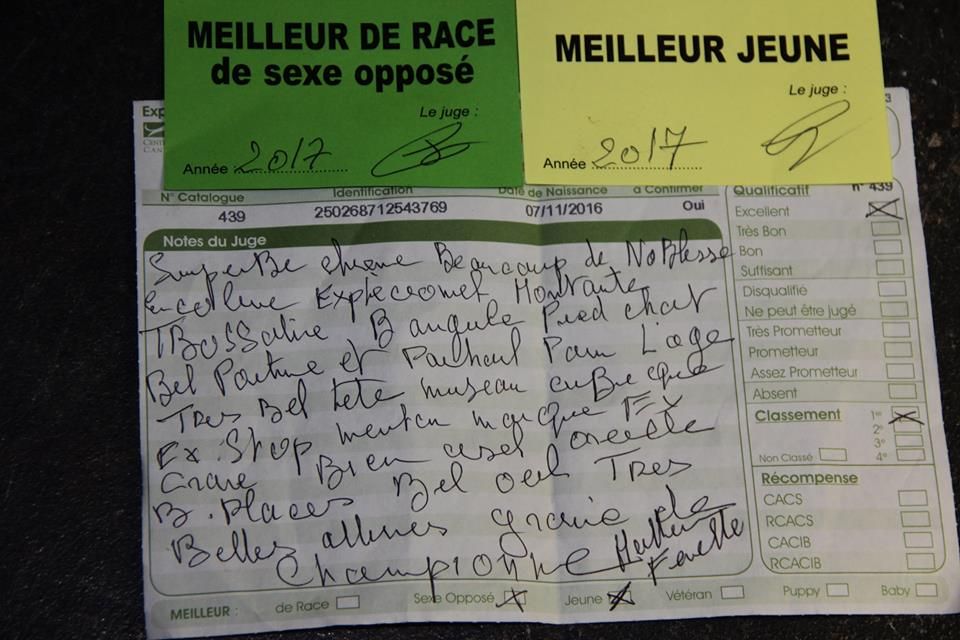 MEILLEUR DE RACE
de sexe opposé
Le juge :
Année : 2017
MEILLEUR JEUNE
Le juge :
Année : 2017
Exp
N° Catalogue Identification Date de Naissance à Confirmer
439 250268712543769 07/11/2016 Oui
Notes du Juge
SuperBe chienne Beaucoup de NoBlesse
encolure Montante
T B ossature B angulé Pied chat
Bel Poitrine et Poitrail Pour L'age
Tres Bel tete museau cuBique
Ex. Stop menton marqué Ex
Crane Bien oreille
B. Placés Bel oeil Tres
Belles allures graine de
Championne Meilleur
Femelle
Qualificatif n° 439
Excellent
Très Bon
Bon
Suffisant
Disqualifié
Ne peut être jugé
Très Prometteur
Prometteur
Assez Prometteur
Absent
Classement 1er
2°
3°
Non Classé 4°
Récompense
CACS
RCACS
CACIB
RCACIB
MEILLEUR : de Race Sexe Opposé Jeune Vétéran Puppy Baby